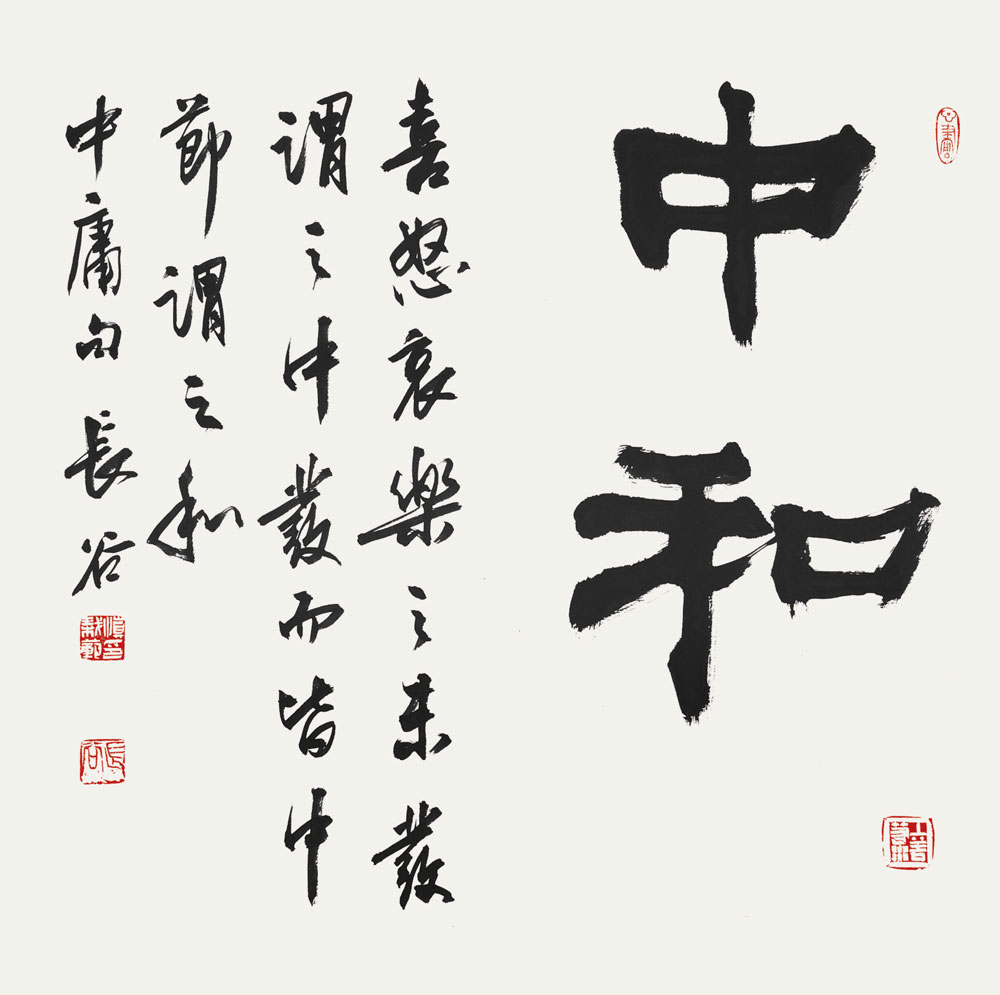 中和
喜怒哀樂之未發
謂之中發而皆中
節謂之和
中庸句 長谷
長谷